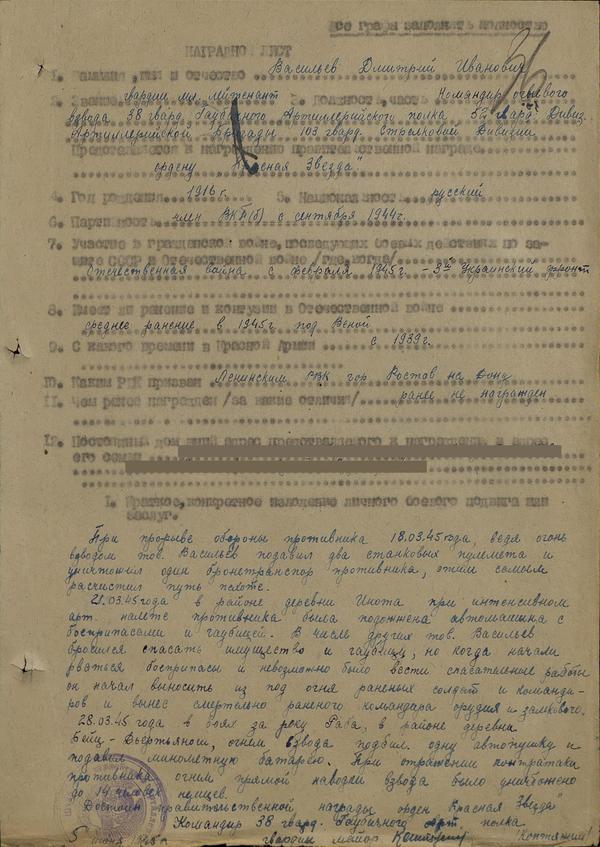 Все графы заполнить полностью
НАГРАДНОЙ ЛИСТ
1. Фамилия, имя и отчество Васильев Дмитрий Иванович
2. Звание гвардии мл. лейтенант 3. Должность, часть Командир огневого
взвода 38 гвард. Гаубичного Артиллерийского полка 52 гвард. Дивиз.
Артиллерийской Бригады 103 гвард. стрелковой Дивизии
Представляется к награждению правительственной награде
ордену "Красная Звезда"
4. Год рождения 1916 г. 5. Национальность русский
6. Партийность член ВКП(б) с сентября 1944г.
7. Участие в гражданской войне, последующих боевых действиях по за-
щите СССР и Отечественной войне /где, когда/
Отечественная война с февраля 1945г - 3й Украинский фронт
8. Имеет ли ранение и контузии в Отечественной войне
среднее ранение в 1945г под Веной
9. С какого времени в Красной Армии с 1939г.
10. Каким РВК призван Ленинским РВК гор Ростов на Дону
11. Чем ранее награжден /за какие отличия/ ранее не награжден
12. Постоянный домашний адрес представляемого к награждению и адрес
его семьи
I. Краткое, конкретное изложение личного боевого подвига или
заслуг.
При прорыве обороны противника 18.03.45 года, ведя огонь
взводом тов. Васильев подавил два станковых пулемета и
уничтожил один бронетранспор противника, этим самым
расчистил путь пехоте.
21.03.45 года в районе деревни Инота при интенсивном
арт. налете противника была подожжена автомашина с
боеприпасами и гаубицей. В числе других тов. Васильев
бросился спасать имущество и гаубицу, но когда начали
рваться боеприпасы и невозможно было вести спасательные работы
он начал выносить из под огня раненых солдат и команди-
ров и вынес смертельно раненого командара орудия и замкового.
28.03.45 года в боях за реку Раба, в районе деревна
огнем взвода подбил одну автопушку и
подавил минометную батарею. При отражении контратаки
противника огнем прямой наводки взвода было уничтожено
до 14 человек немцев.
Достоин правительственной награды орден "Красная Звезда"
Командир 38 гвард. Гаубичного арт полка
гвардии майор
5 июня 1945 г.